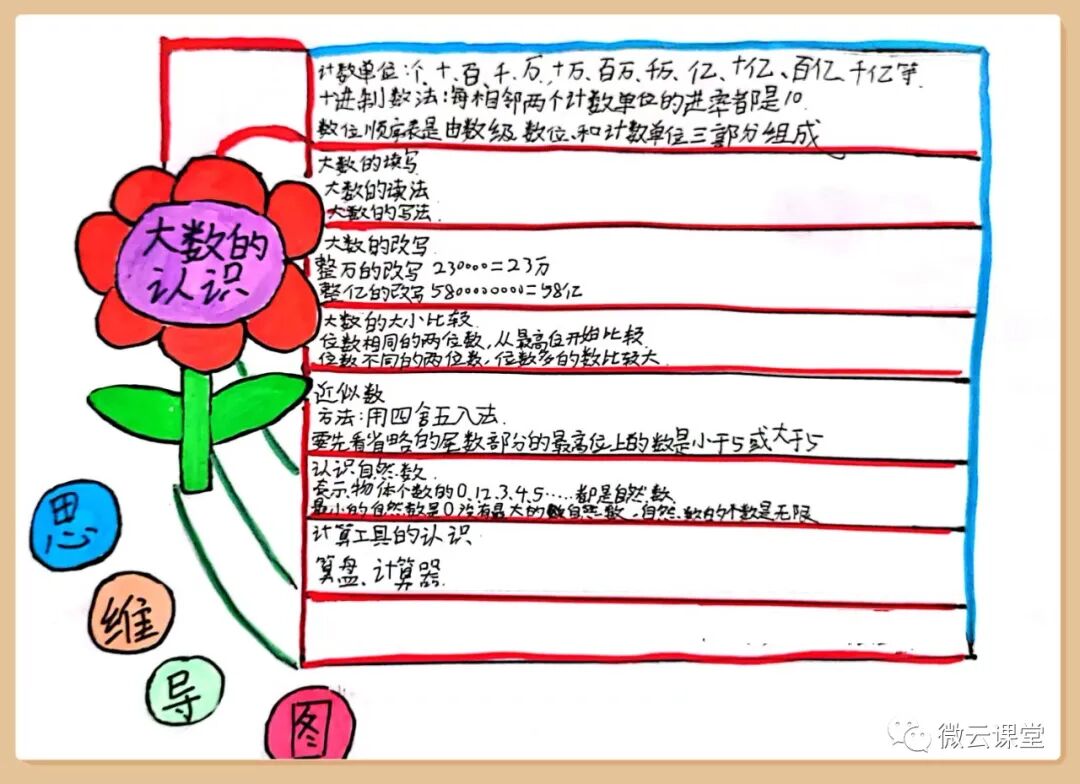 大数的
认识
计数单位:个、十、百、千、万、十万、百万、千万、亿、十亿、百亿、千亿等.
十进制数法:每相邻两个计数单位的进率都是10.
数位顺序表是由数级、数位、和计数单位三部分组成
大数的填写
大数的读法
大数的写法.
大数的改写.
整万的改写 230000=23万
整亿的改写 5800000000=58亿
大数的大小比较.
位数相同的两位数,从最高位开始比较.
位数不同的两位数,位数多的数比较大.
近似数
方法:用四舍五入法.
要先看省略的尾数部分的最高位上的数是小于5或大于5
认识自然数.
表示物体个数的0.12.3.4.5……都是自然数.
最小的自然数是0.没有最大的自然数,自然数的个数是无限
计算工具的认识.
算盘、计算器.
思
维
导
图
微云课堂